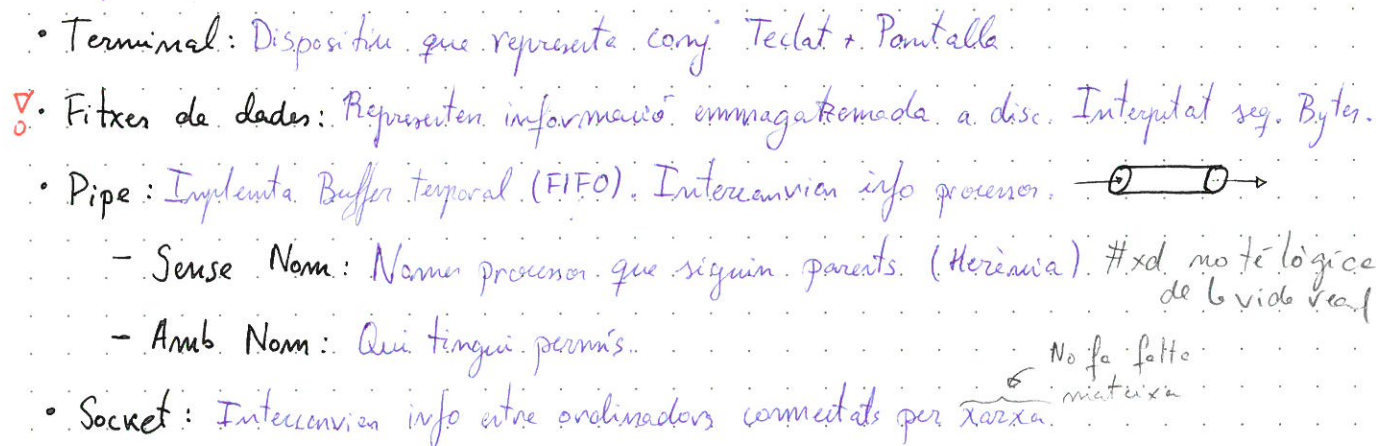 • Terminal: Dispositiu que representa conj Teclat + Pantalla.
• Fitxer de dades: Representen informació emmagatzemada a disc. Interpetat seq. Bytes.
• Pipe: Implenta Buffer temporal (FIFO). Intercanvien info processos.
- Sense Nom: Només processos que siguin parents. (Herència). #xd no té lògica
de la vida real
- Amb Nom: Qui tingui permís.
No fa falta
mateixa
• Socket: Intercanvien info entre ordinadors connectats per xarxa.